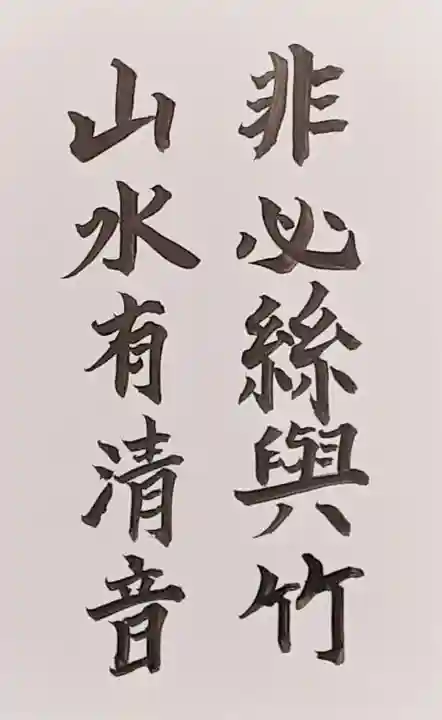 非必絲與竹
山水有清音